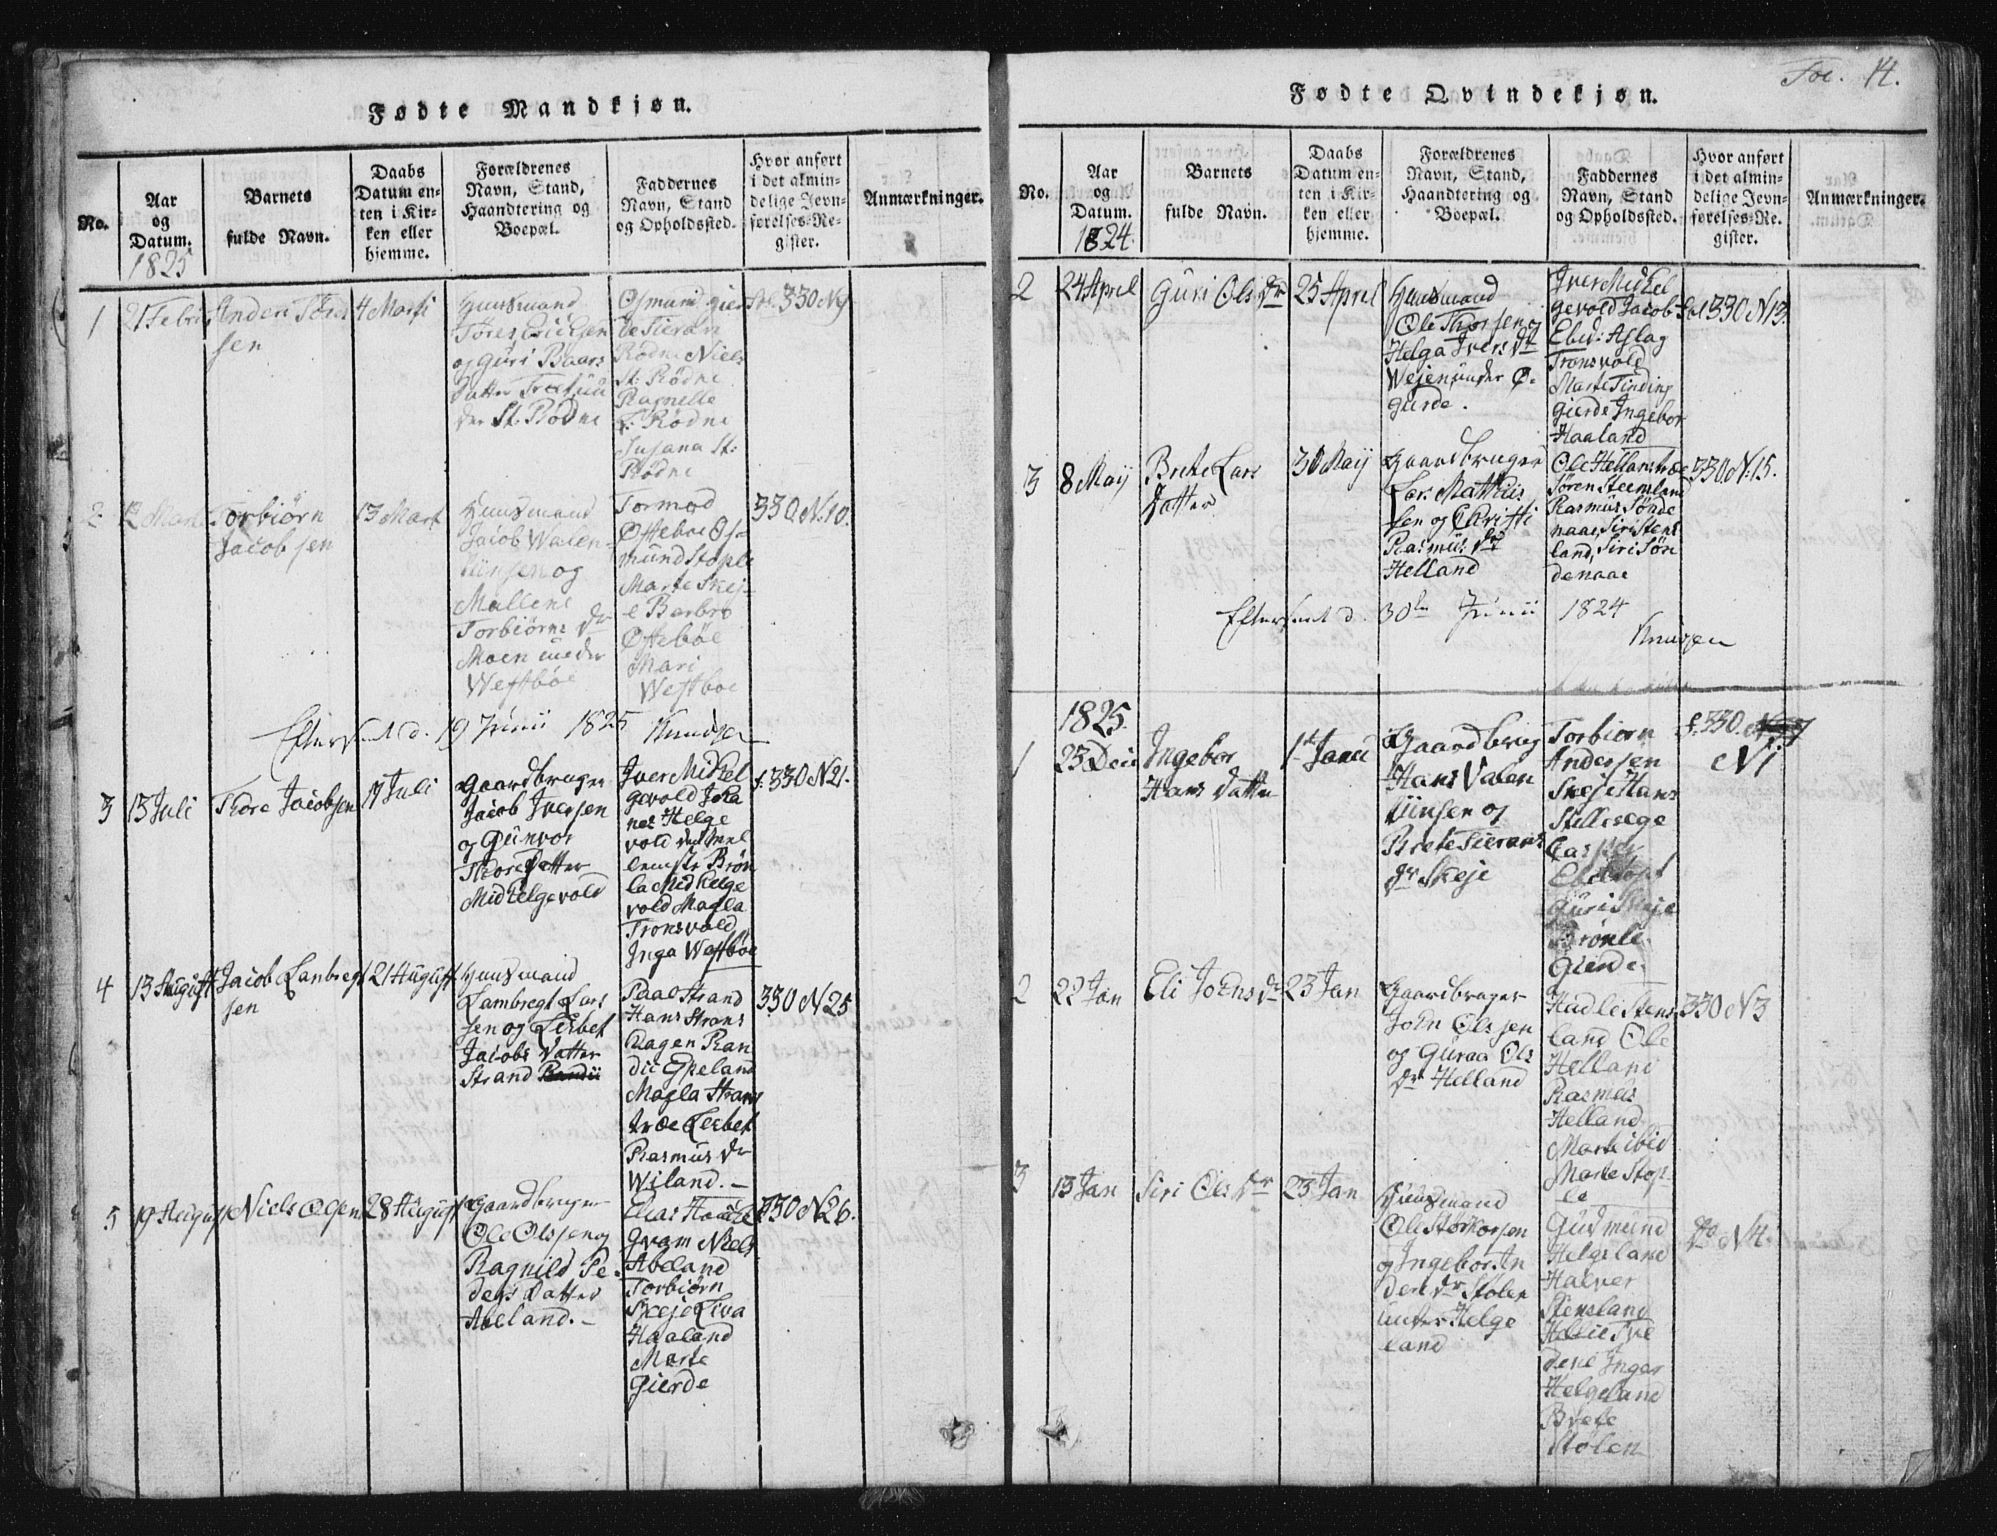 Fødte Mandkjøn.
No.
Aar
og
Datum.
1825
Barnets
fulde Navn.
Daabs
Datum en-
ten i Kir-
ken eller
hjemme.
Forældrenes
Navn, Stand,
Haandtering og
Boepæl.
Faddernes
Navn, Stand
og Opholdssted.
Hvor anført
i det almin-
delige Jevn-
førelses-Re-
gister.
Anmærkninger.
1
21 Febr
4 Marti
Huusmand
og Guri Baars
datter
der St: Rødne
Rødne Niels
St: Rødne
Ragnelle
L: Rødne
Susana St:
Rødne
330 N 9
2
Torbiørn
Jacobsen
13 Mart
Huusmand
Jacob Walen-
tinsen og
Mallene
Torbiørns dr
Moen under
Westbøe
Tormod
Øftebøe Os-
mund Stople
Marte Skej-
e Barbro
Øftebøe
Mari
Westboe
330 N. 10.
Efterseet d. 19 Junii 1825 Knudsen
3
13 Juli
Thore Jacobsen
17 Juli
Gaardbruger
Jacob Iversen
og Gunvor
Thores datter
Midhelgevold
Iver Midhel
gevold Joha
nes Helge
vold
Brøn
la Midhelge
vold Magla
Tronsvold
Inga Westbøe
f. 330 N 21.
4
13 August
Jacob Lambregt
sen
21 August
Huusmand
Lambregt Lars
sen og Lisbet
Jacobs datter
Strand
Paal Strand
Hans Strans
Hagen Ran
dii Espeland
Magla Strans
træe Lisbet
Rasmus dr
Wiland.
330 N 25
5
19 August
Niels Olsen
28 August
Gaardbruger
Ole Olssen og
Ragnild Pe-
ders datter
Abeland.
Elias Haahe
Qvam Niels
Abeland
Torbiørn
Skeje Liva
Haaland
Marte
Gierde
330 N 26.
Fol. 14.
Fødte Qvindekjøn.
No.
Aar
og
Datum.
1824.
Barnets
fulde Navn.
Daabs
Datum en-
ten i Kir-
ken eller
hjemme.
Forældrenes
Navn, Stand,
Haandtering og
Boepæl.
Faddernes
Navn, Stand
og Opholdssted.
Hvor anført
i det almin-
delige Jevn-
førelses-Re-
gister.
Anmærkninger.
2
24 April
Guri Ols dr
25 April
Huusmand
Ole Thorsen og
Helga Ivers dr
Wejen under Ø-
gierde.
Iver Midhel
gevold Jacob
Ebed: Aslag
Tronsvold
Marte Tinding
gierde Ingebor
Haaland
Fol 330 N 13.
3
8 Maij
Brete Lars
datter
30 Maij
Gaardbruger
Lars Mathiis
sen og Christi
Rasmus dr
Helland
Ole Hellanstræe
Søren Steensland
Rasmus Sønde
naae, Siri Stens
land, Siri Søn
denaae
330 N. 15.
Efterseet d. 30te Junii 1824
Knudsen
1825.
1
23 Dec
Ingebor
Hans datter
1st Janu
Gaardbrug
Hans Valen
tinsen og
Brete Tierans
dr Skeje
Torbiørn
Andersen
Skeje Hans
Guri Skeje
Brønle
Gierde
f. 330.
N 1
2
22 Jan
Eli Johns dr
23 Jan
Gaardbruger
John Olssen
og Guraa Ols
dr Helland
Hadle Stens
land Ole
Helland
Rasmus
Helland
Marte ibid
Marte Stop-
le
330 N 3
3
13 Jan
Siri Ols dr
23 Jan
Huusmand
Ole Størkorsen
og Ingebor An
ders dr Stølen
under Helge
land
Gudmund
Helgeland
Halver
Stensland
Inger
Helgeland
Brete
Stølen
do N 4.